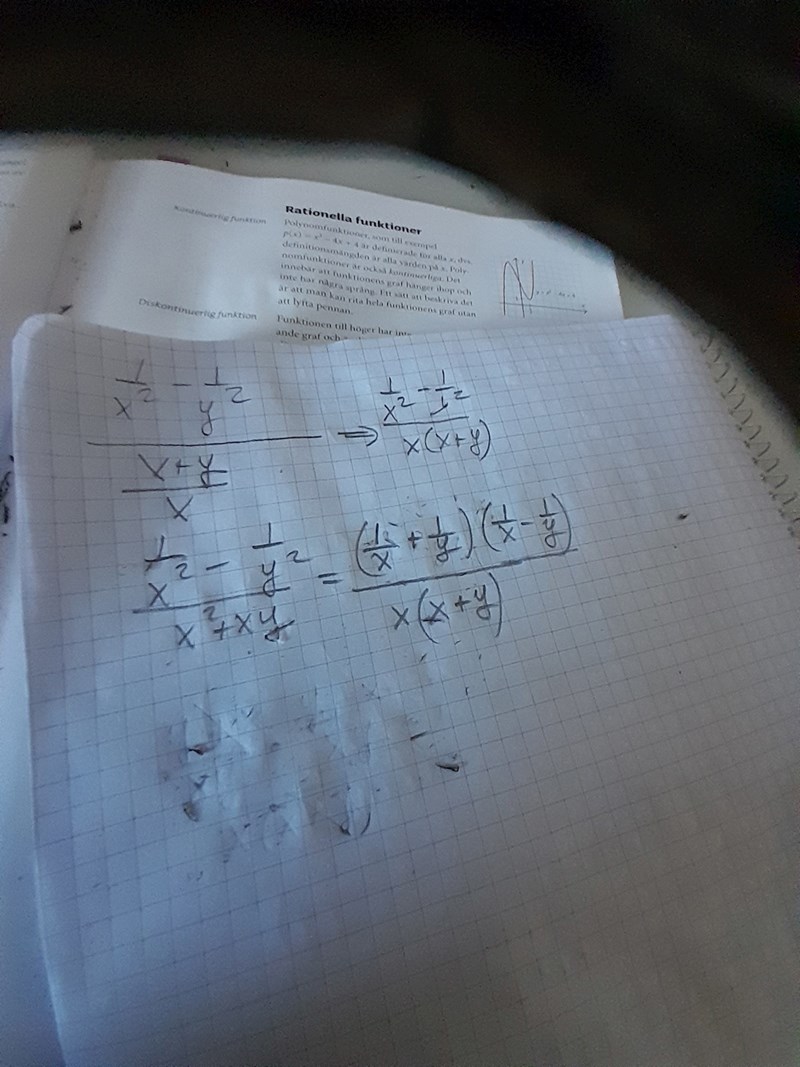 Rationella funktioner
Kontinuerlig funktion
Polynomfunktioner, som till exempel
p(x) = x² − 4x + 4 är definierade för alla x, dvs.
definitionsmängden är alla värden på x. Poly-
nomfunktioner är också kontinuerliga. Det
innebär att funktionens graf hänger ihop och
inte har några språng. Ett sätt att beskriva det
är att man kan rita hela funktionens graf utan
att lyfta pennan.
Diskontinuerlig funktion
Funktionen till höger har
ande graf och
(1/x² − 1/y²) / ((x+y)/x) ⇒ (1/x² − 1/y²) / (x(x+y))
(1/x² − 1/y²) / (x²+xy) = ((1/x + 1/y)(1/x − 1/y)) / (x(x+y))